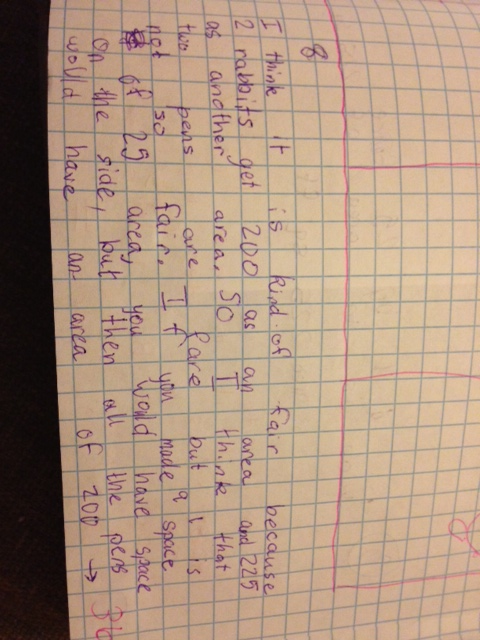 8
I think it is kind of fair because
2 rabbits get 200 as an area and 225
as another area, SO I think that
two pens are fare but 1 is
not so fair. If you made a space
of 25 area, you would have space
on the side, but then all the pens
would have an area of 200 →